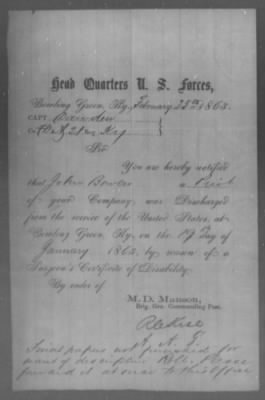 Head Quarters U. S. Forces,
Bowling Green, Ky., February 25th 1863.
CAPT.
Co. 21 Reg. Ky
Sir
You are hereby notified
that John Bowles a Privt
of your Company, was Discharged
from the service of the United States, at
Bowling Green, Ky., on the day of
January 1863, by reason of a
Surgeon's Certificate of Disability.
By order of
M. D. Manson,
Brig. Gen. Commanding Post.
A. A.
papers not furnished for
want of descriptive Please
forward it at once to this Office